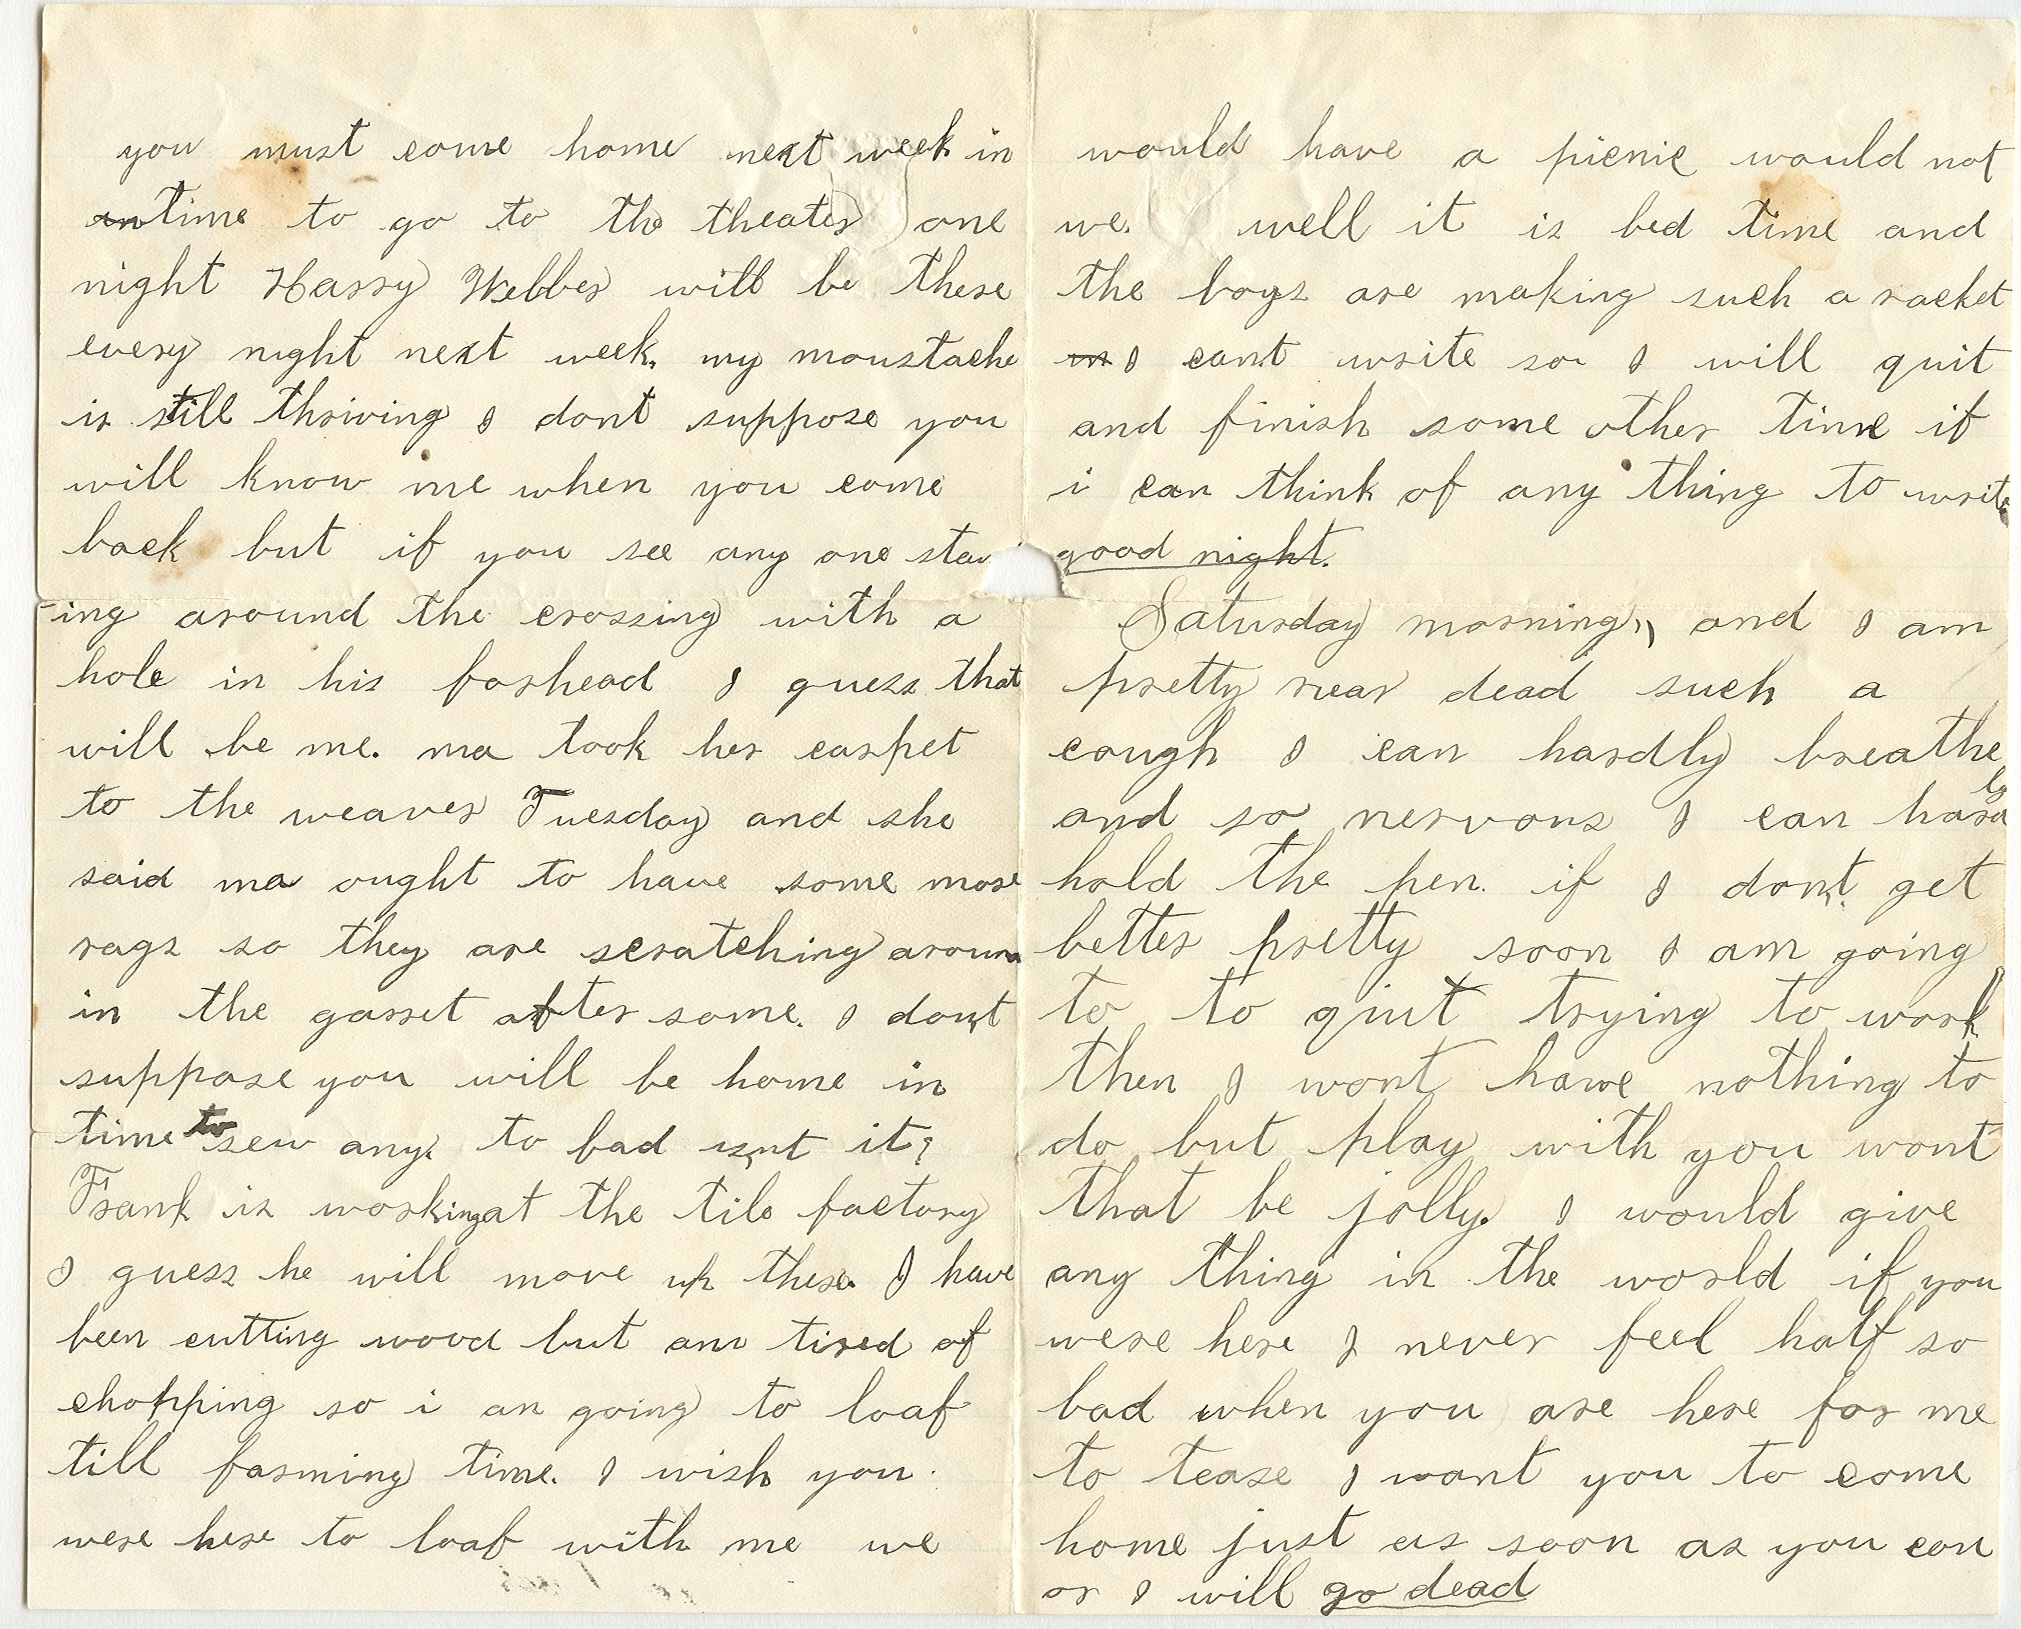 you must come home next week in
in time to go to the theater one
night Harry Webber will be there
every night next week. my moustache
is still thriving I dont suppose you
will know me when you come
back but if you see any one
ing around the crossing with a
hole in his forhead I guess that
will be me. ma took her carpet
to the weaver Tuesday and she
said ma ought to have some more
rags so they are scratching around
in the garret after some. I don,t
suppose you will be home in
time to sew any. to bad isn,t it?
Frank is working at the tile factory
I guess he will move up there. I have
been cutting wood but am tired of
chopping so i an going to loaf
till farming time. I wish you
were here to loaf with me we
would have a picnic would not
we. well it is bed time and
the boys are making such a racket
I can.t write so I will quit
and finish some other time if
i can think of any thing to write
good night.
Saturday morning,, and I am
pretty near dead such a
cough I can hardly breathe
and so nervous I can hardly
hold the pen. if I don,t get
better pretty soon I am going
to to qiut trying to work
then I wont have nothing to
do but play with you wont
that be jolly. I would give
any thing in the world if you
were here I never feel half so
bad when you are here for me
to tease I want you to come
home just as soon as you can
or I will go dead